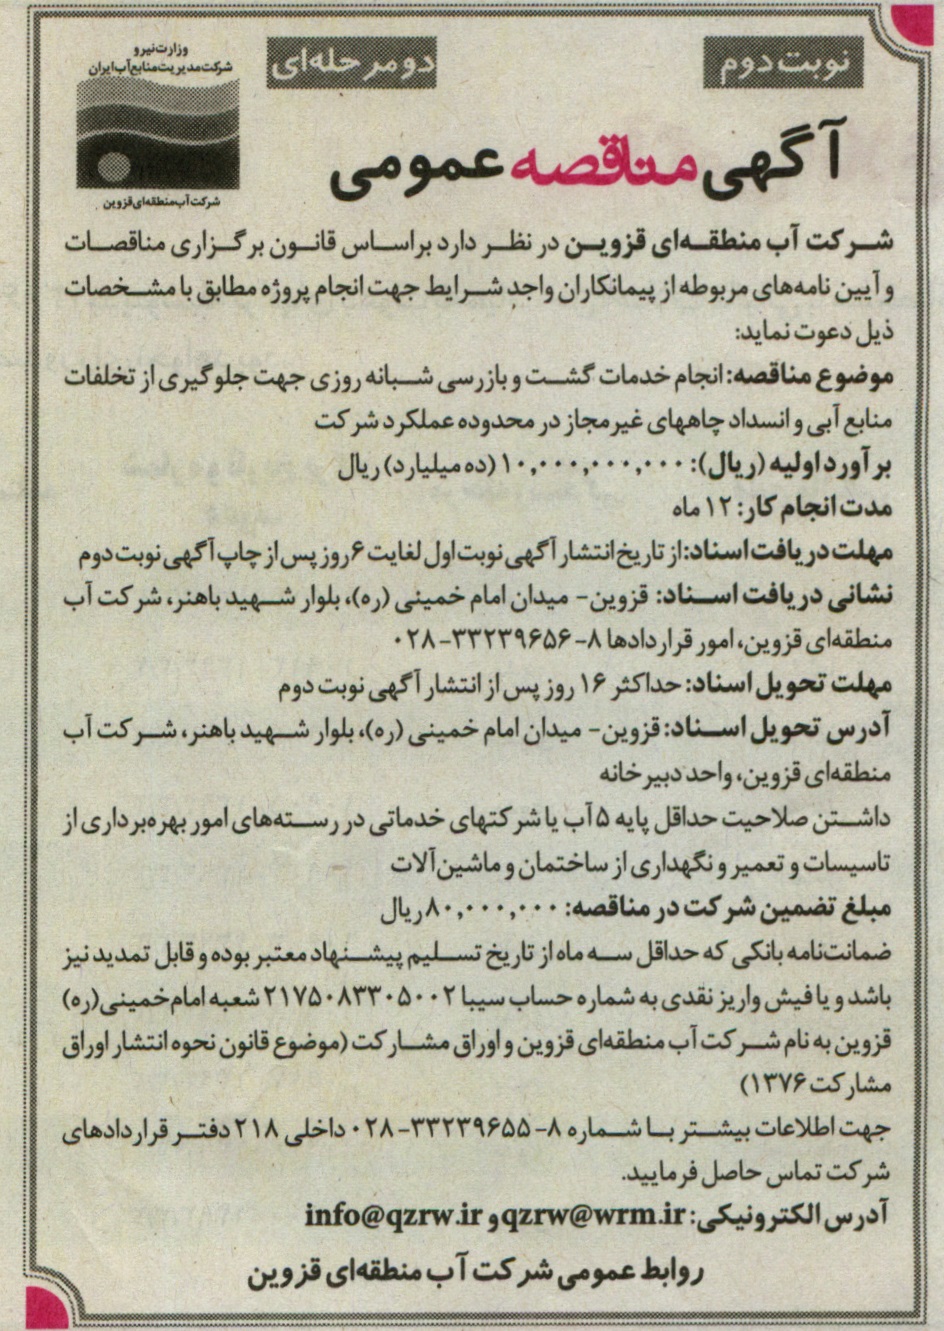 نوبت دوم
دو مرحله‌ای
وزارت نیرو
شرکت مدیریت منابع آب ایران
شرکت آب منطقه‌ای قزوین
آگهی مناقصه عمومی
شرکت آب منطقه‌ای قزوین در نظر دارد براساس قانون برگزاری مناقصات
و آیین نامه‌های مربوطه از پیمانکاران واجد شرایط جهت انجام پروژه مطابق با مشخصات
ذیل دعوت نماید:
موضوع مناقصه: انجام خدمات گشت و بازرسی شبانه روزی جهت جلوگیری از تخلفات
منابع آبی و انسداد چاههای غیرمجاز در محدوده عملکرد شرکت
برآورد اولیه (ریال): ۱۰,۰۰۰,۰۰۰,۰۰۰ (ده میلیارد) ریال
مدت انجام کار: ۱۲ ماه
مهلت دریافت اسناد: از تاریخ انتشار آگهی نوبت اول لغایت ۶ روز پس از چاپ آگهی نوبت دوم
نشانی دریافت اسناد: قزوین- میدان امام خمینی (ره)، بلوار شهید باهنر، شرکت آب
منطقه‌ای قزوین، امور قراردادها ۸-۳۳۲۳۹۶۵۶-۰۲۸
مهلت تحویل اسناد: حداکثر ۱۶ روز پس از انتشار آگهی نوبت دوم
آدرس تحویل اسناد: قزوین- میدان امام خمینی (ره)، بلوار شهید باهنر، شرکت آب
منطقه‌ای قزوین، واحد دبیرخانه
داشتن صلاحیت حداقل پایه ۵ آب یا شرکتهای خدماتی در رسته‌های امور بهره‌برداری از
تاسیسات و تعمیر و نگهداری از ساختمان و ماشین‌آلات
مبلغ تضمین شرکت در مناقصه: ۸۰,۰۰۰,۰۰۰ ریال
ضمانت‌نامه بانکی که حداقل سه ماه از تاریخ تسلیم پیشنهاد معتبر بوده و قابل تمدید نیز
باشد و یا فیش واریز نقدی به شماره حساب سیبا ۲۱۷۵۰۸۳۳۰۵۰۰۲ شعبه امام‌خمینی(ره)
قزوین به نام شرکت آب منطقه‌ای قزوین و اوراق مشارکت (موضوع قانون نحوه انتشار اوراق
مشارکت ۱۳۷۶)
جهت اطلاعات بیشتر با شماره ۸-۳۳۲۳۹۶۵۵-۰۲۸ داخلی ۲۱۸ دفتر قراردادهای
شرکت تماس حاصل فرمایید.
آدرس الکترونیکی: qzrw@wrm.ir و info@qzrw.ir
روابط عمومی شرکت آب منطقه‌ای قزوین